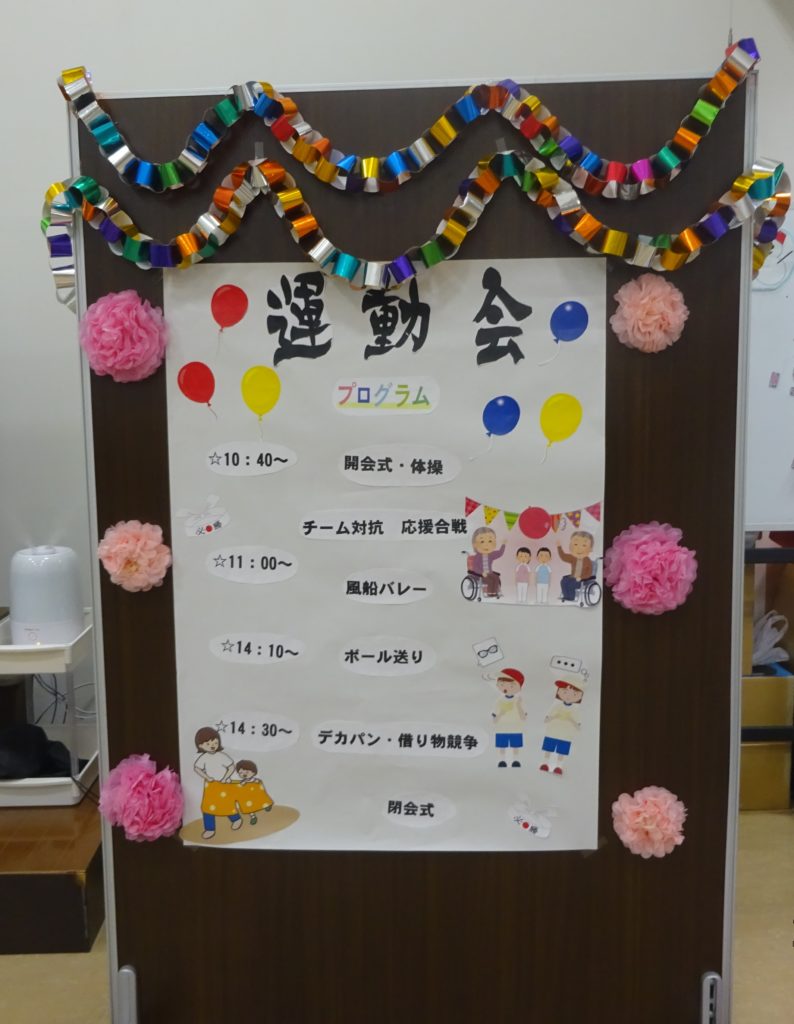 運動会
プログラム
☆10:40～ 開会式・体操
チーム対抗 応援合戦
必 勝
☆11:00～
風船バレー
☆14:10～ ボール送り
☆14:30～ デカパン・借り物競争
閉会式
必 勝